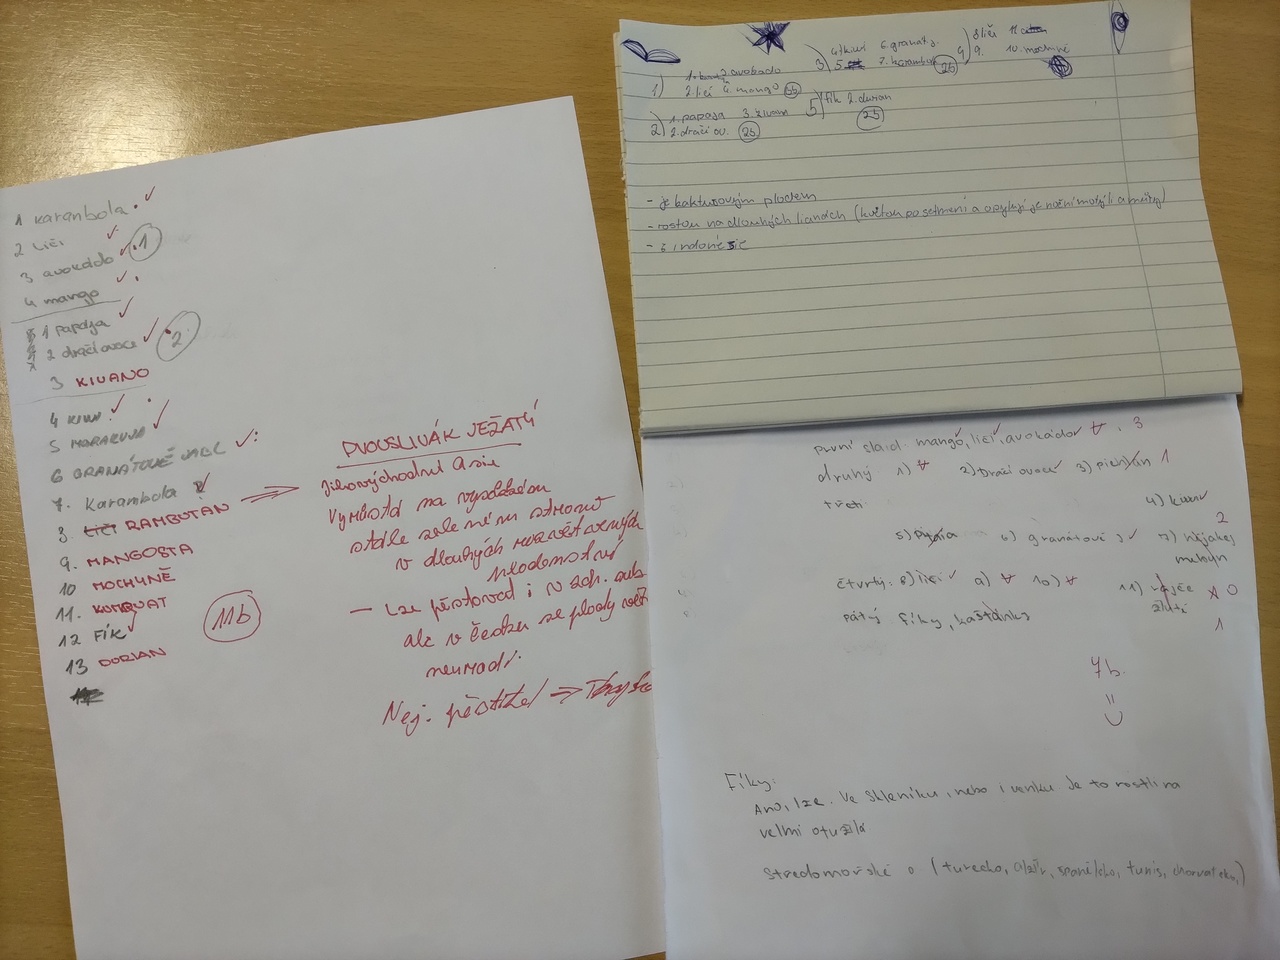 1 Karambola
2 Liči
3 avokádo 1
4 mango
1 papája
2 dračí ovoce 2
3 KIWANO
4 KIWI
5 MARAKUJA
6 GRANÁTOVÉ JABL
7. Karambola
8. Liči RAMBUTAN
9. MANGOSTA
10 MOCHYNĚ
11. KUMQUAT
12 FÍK
13 DURIAN
11b
DVOUSLIVÁK JEŽATÝ
Jihovýchodní Asie
stále zeleném stromu
v dlouhých
– Lze pěstovat i v
ale v Česku se plody
neurodí.
Nej. pěstitel =>
1) avokádo
2. liči 4. mango
2) 1. papája 3. kiwano
2. dračí ov. 2b
3) 4 kiwi 6. granát j.
5. 7. karambola 2b
4) 8 liči 11
9. 10. mochyně
5) fík 2. durian
2b
- je kaktusovým plodem
- rostou na dlouhých lianách (kvetou po setmění a opylují je noční motýli a můry)
- z indonésie
první slaid: mango, liči, avokádo 3
druhý 1) 2) Dračí ovoce 3) 1
třetí 4) kiwi
5) 6) granátové j 7) nějakej 2
čtvrtý: 8) liči 9) 10) 11) 0
pátý fíky, kaštánky 1
4b.
Fíky:
Ano, lze. Ve skleníku, nebo i venku je to rostlina
velmi otužilá
Středomořské o (turecko, alžír, španělsko, tunis, chorvatsko,)